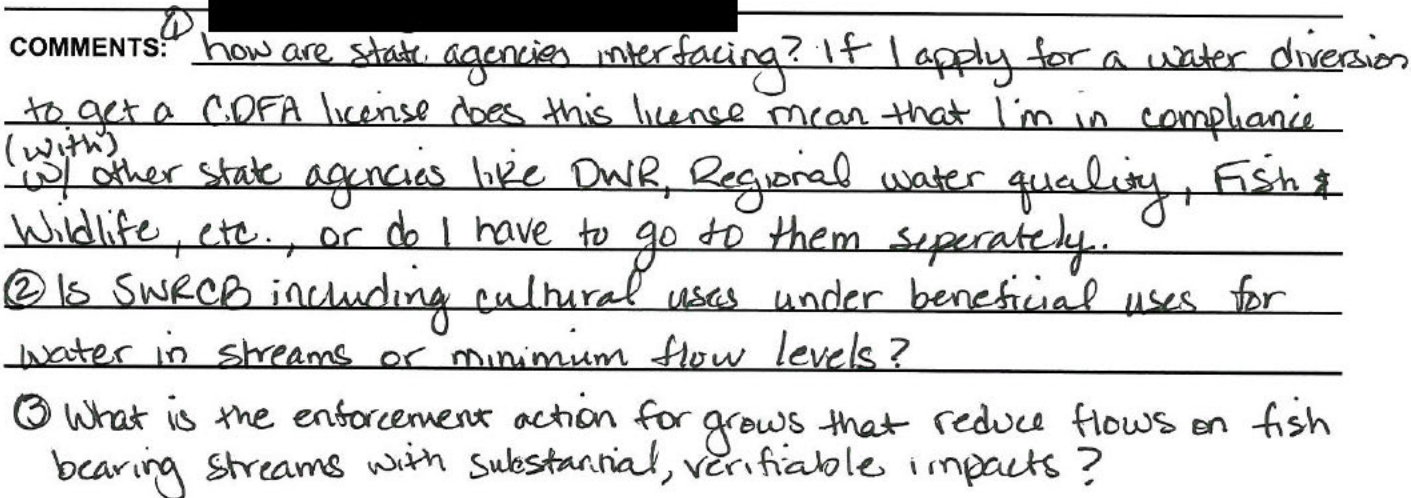 COMMENTS: ① how are state agencies interfacing? If I apply for a water diversion
to get a CDFA license does this license mean that I'm in compliance
(with)
w/ other state agencies like DWR, Regional water quality, Fish &
Wildlife, etc., or do I have to go to them seperately.
② Is SWRCB including cultural uses under beneficial uses for
water in streams or minimum flow levels?
③ What is the enforcement action for grows that reduce flows on fish
bearing streams with substantial, verifiable impacts?